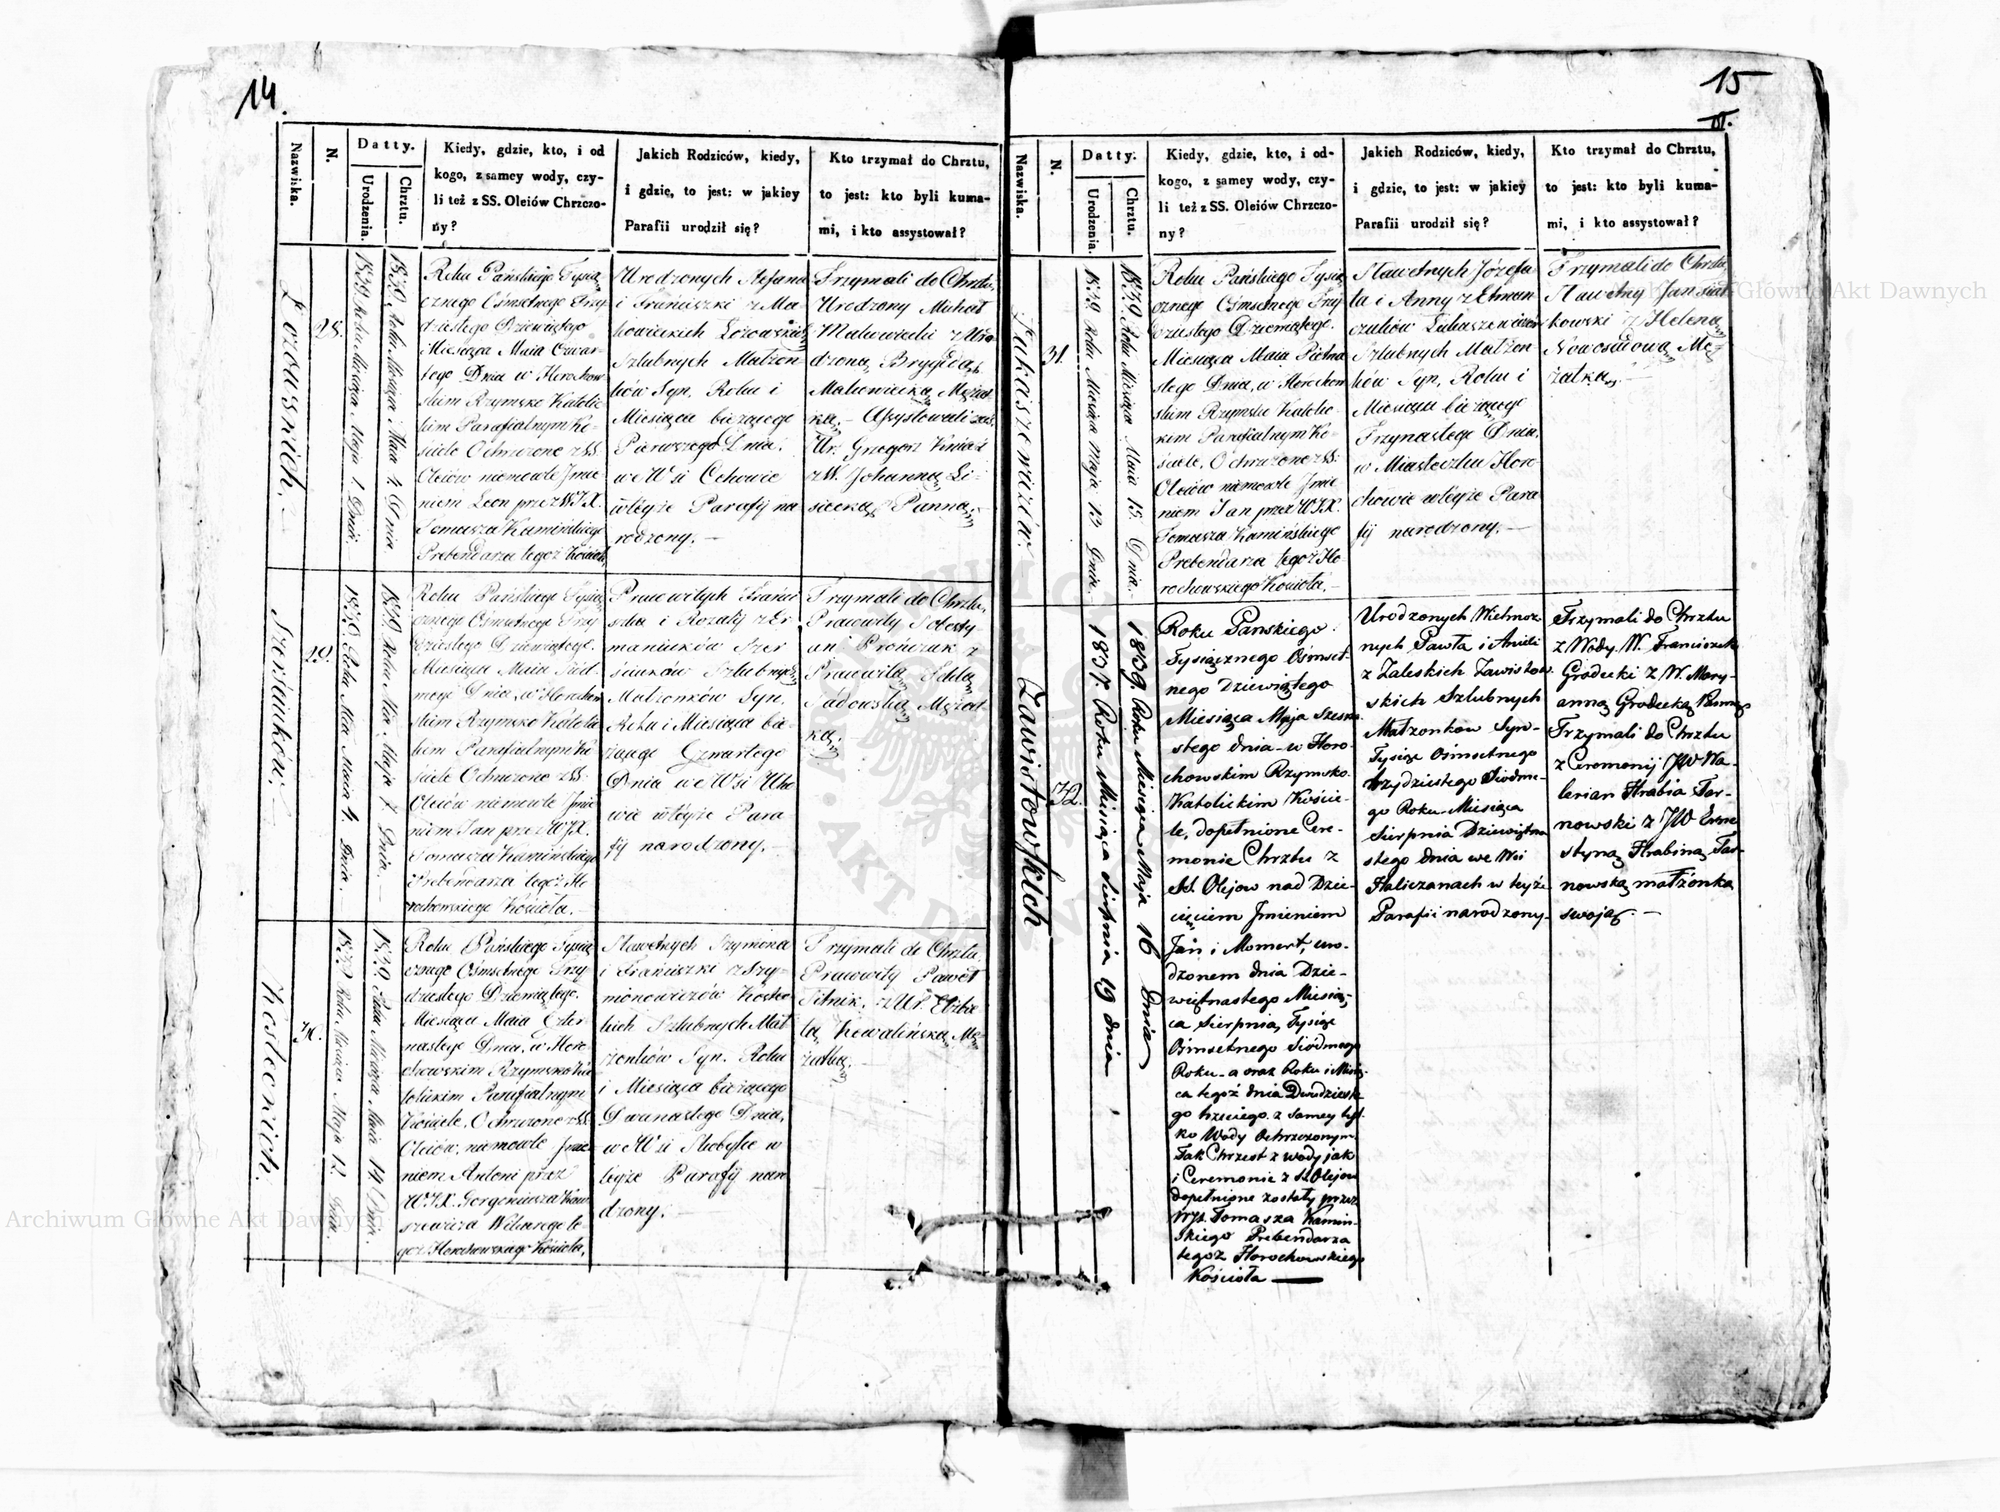 14.
Nazwiska.
N.
Datty.
Urodzenia.
Chrztu.
Kiedy, gdzie, kto, i od
kogo, z samey wody, czy-
li też z SS. Oleiów Chrzczo-
ny?
Jakich Rodziców, kiedy,
i gdzie, to jest: w jakiey
Parafii urodził się?
Kto trzymał do Chrztu,
to jest: kto byli kuma-
mi, i kto assystował?
28.
1839 Roku Miesiąca Maja 1. Dnia.
1839 Roku Miesiąca Maia 4. Dnia
Roku Pańskiego Tysią
cznego Ośmsetnego Trzy
dziestego Dziewiątego
Miesiąca Maia Czwar
tego Dnia w Horochow
skim Rzymsko Katolic
kim Parafialnym Ko
ściele Ochrzczone z SS.
Oleiów niemowle Jmie
niem Leon przez WJX.
Tomasza Kamińskiego
Prebendarza tegoż Kościoła
Urodzonych Stefana
i Franciszki z Ma
kowieckich
Szlubnych Małżon
ków Syn, Roku i
Miesiąca bieżącego
Pierwszego Dnia,
we Wsi
w teyże Parafij na
rodzony.—
Trzymali do Chrztu,
Urodzony Michał
z Uro
dzoną Brygidą
Mężat
ką.— Assystowali zaś.
Ur. Grzegorz
z W. Johanną Li
siecką Panną.
29.
Roku Pańskiego Tysią
cznego Ośmsetnego Trzy
dziestego Dziewiątego.
Miesiąca Maia Siód
mego Dnia, w Horochow
skim Rzymsko Katolic
kim Parafialnym Ko
ściele Ochrzczone z SS.
Oleiów niemowle Jmie
niem Jan przez WJX.
Tomasza Kamińskiego
Prebendarza tegoż Ho
rochowskiego Kościoła.—
Pracowitych Franci
szka i Rozalij z Er
maniuków Szew
Szlubnych
Małżonków Syn,
Roku i Miesiąca bie
żącego Czwartego
Dnia we Wsi
w teyże Para
fij narodzony.—
Trzymali do Chrztu,
Pracowity
z
Pracowitą
Sadowską Mężat
ką.
30.
Roku Pańskiego Tysią
cznego Ośmsetnego Trzy
dziestego Dziewiątego.
Miesiąca Maia Czter
nastego Dnia, w Horo
chowskim Rzymsko Ka
tolickim Parafialnym
Kościele, Ochrzczone z SS.
Oleiów, niemowle Jmie
niem Antoni przez
WJX.
tegoż Horochowskiego Kościoła,
Sławetnych Szymona
i Franciszki z Szy
monowiczów
Szlubnych Mał
żonków Syn, Roku
i Miesiąca bieżącego
Dwunastego Dnia,
we Wsi w
teyże Parafij naro
dzony.
Trzymali do Chrztu,
Pracowity Paweł
z Ur. Elżbie
tą Kowalińską Mę
żatką.
15
Nazwiska.
N.
Datty.
Urodzenia.
Chrztu.
Kiedy, gdzie, kto, i od-
kogo, z samey wody, czy-
li też z SS. Oleiów Chrzczo-
ny?
Jakich Rodziców, kiedy,
i gdzie, to jest: w jakiey
Parafii urodził się?
Kto trzymał do Chrztu,
to jest: kto byli kuma-
mi, i kto assystował?
Łukaszewiczów
31.
1839 Roku Miesiąca Maja 13. Dnia.
1839. Roku Miesiąca Maia 15. Dnia.
Roku Pańskiego Tysią
cznego Ośmsetnego Trzy
dziestego Dziewiątego.
Miesiąca Maia Piętna
stego Dnia, w Horochow
skim Rzymsko Katolic
kim Parafialnym Ko
ściele, Ochrzczone z SS.
Oleiów niemowle Jmie
niem Jan przez WJX.
Tomasza Kamińskiego
Prebendarza tegoż Ho
rochowskiego Kościoła.—
Sławetnych Józefa
i Anny
Łukaszewiczów
Szlubnych Małżon
ków Syn, Roku i
Miesiąca bieżącego
Trzynastego Dnia,
w Miasteczku Horo
chowie w teyże Para
fij narodzony.—
Trzymali do Chrztu,
Sławetny Jan
z Heleną
Mę
żatką.—
Zawistowskich
32.
1837. Roku Miesiąca Sierpnia 19 dnia
1839. Roku Miesiąca Maja 16 Dnia
Roku Pańskiego
Tysiącznego Ośmset-
nego Dziewiątego
Miesiąca Maja Szesna
stego dnia w Horo-
chowskim Rzymsko
Katolickim Koście-
le, dopełnione Cere-
monie Chrztu z
SS. Olejow nad Dzie-
cięciem Jmieniem
Jan i Momert, uro-
dzonem dnia Dzie-
więtnastego Miesią-
ca Sierpnia, Tysiąc
Ośmsetnego Siódmego
Roku - a oraz Roku i Miesią-
ca tegoż dnia Dwudzieste
go trzeciego z samey tyl-
ko Wody Ochrzczonym.
Tak Chrzest z wody jak
i Ceremonie z SS Olejow
dopełnione zostały przez
WJX. Tomasza Kamiń-
skiego Prebendarza
tegoż Horochowskiego
Kościoła —
Urodzonych Wielmoż
nych Pawła i Anieli
z Zaleskich Zawistow
skich Szlubnych
Małżonkow Syn-
Tysiąc Ośmsetnego
trzydziestego Siódme-
go Roku Miesiąca
Sierpnia Dziewiętna
stego dnia we Wsi
Haliczanach w teyże
Parafii narodzony-
Trzymali do Chrztu
z Wody. W. Franciszek
Grodecki z W. Mary-
anną Grodecką Panną
Trzymali do Chrztu
z Ceremonij JW Wa-
lerian Hrabia Tar-
nowski z JW Erne
styną Hrabiną Tar-
nowską małżonką
swoją.—
Archiwum Główne Akt Dawnych
Archiwum Główne Akt Dawnych